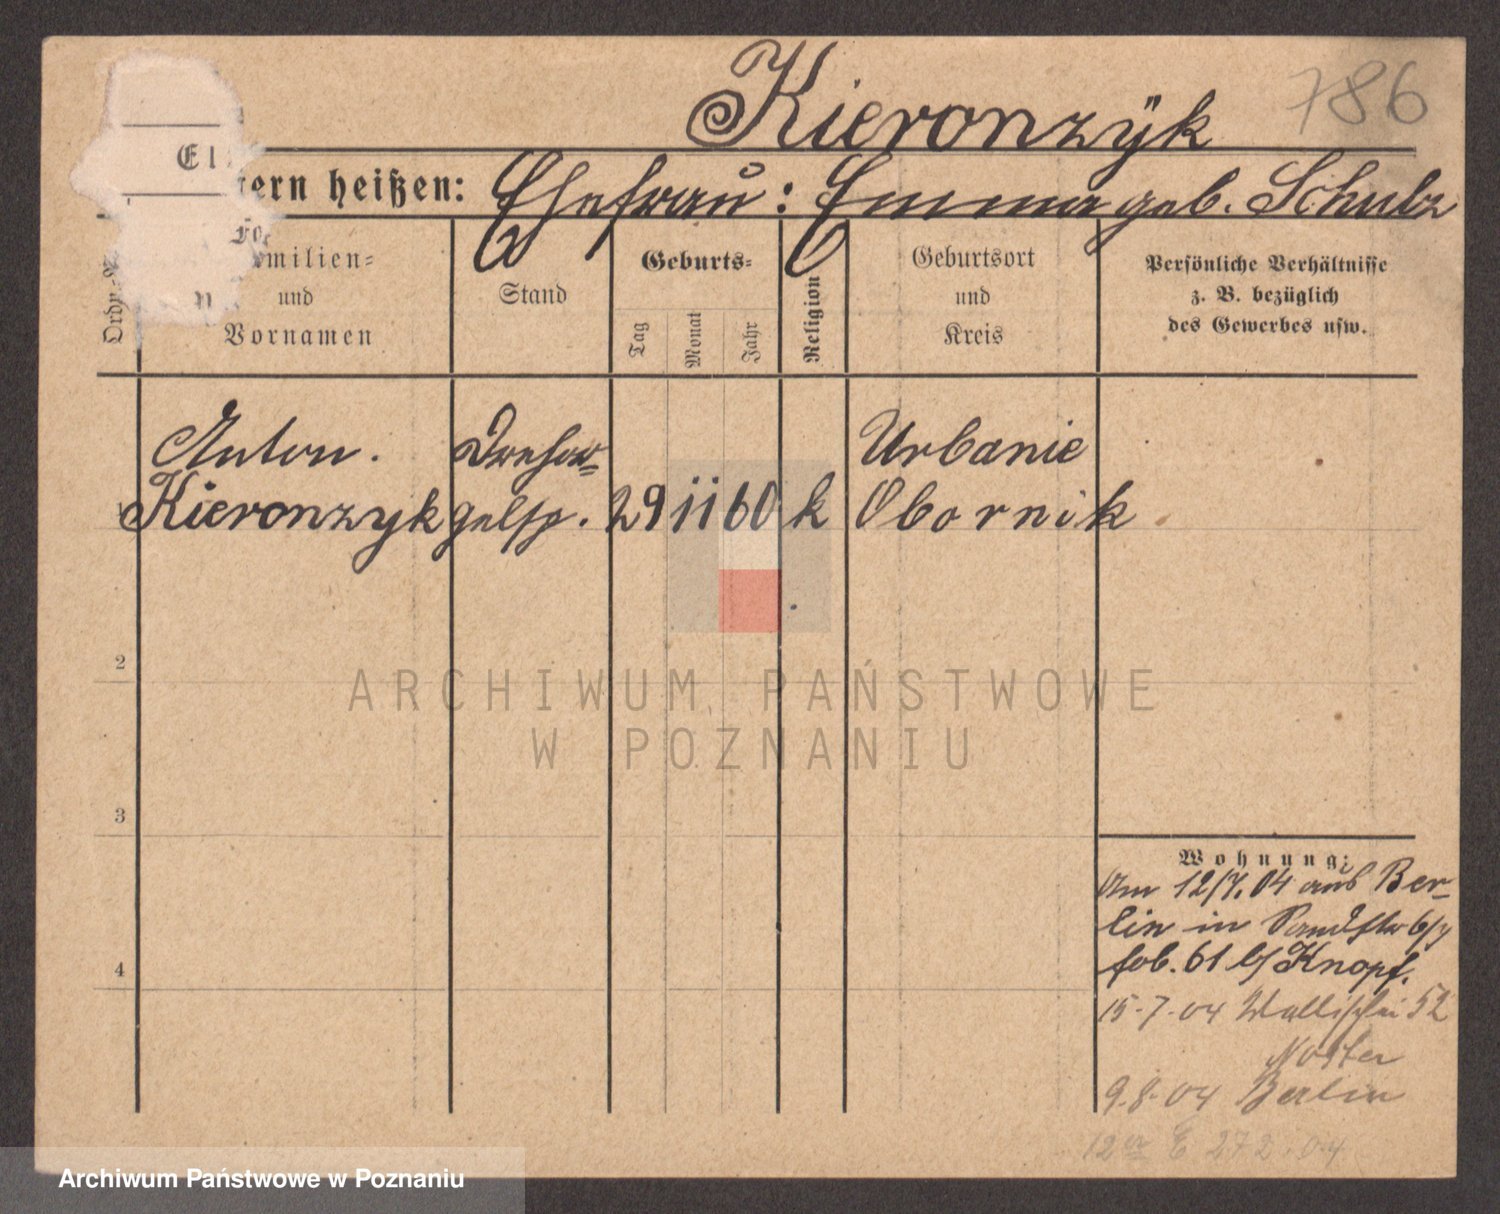 786
Kieronzyk
El
tern heißen: Ehefrau: Emma geb. Schulz
Ordn.
Fa
milien-
und
Vornamen
Stand
Geburts-
Tag
Monat
Jahr
Religion
Geburtsort
und
Kreis
Persönliche Verhältnisse
z. B. bezüglich
des Gewerbes usw.
Anton. Dreher= Urbanie
Kieronzyk 29 11 60 k Obornik
2
3
4
Wohnung:
Am 12/7. 04 aus Ber-
lin in
61 b/ Knopf.
15-7-04 Wallischei 52
9.8-04 Berlin
E 272.04
ARCHIWUM PAŃSTWOWE
W POZNANIU
Archiwum Państwowe w Poznaniu